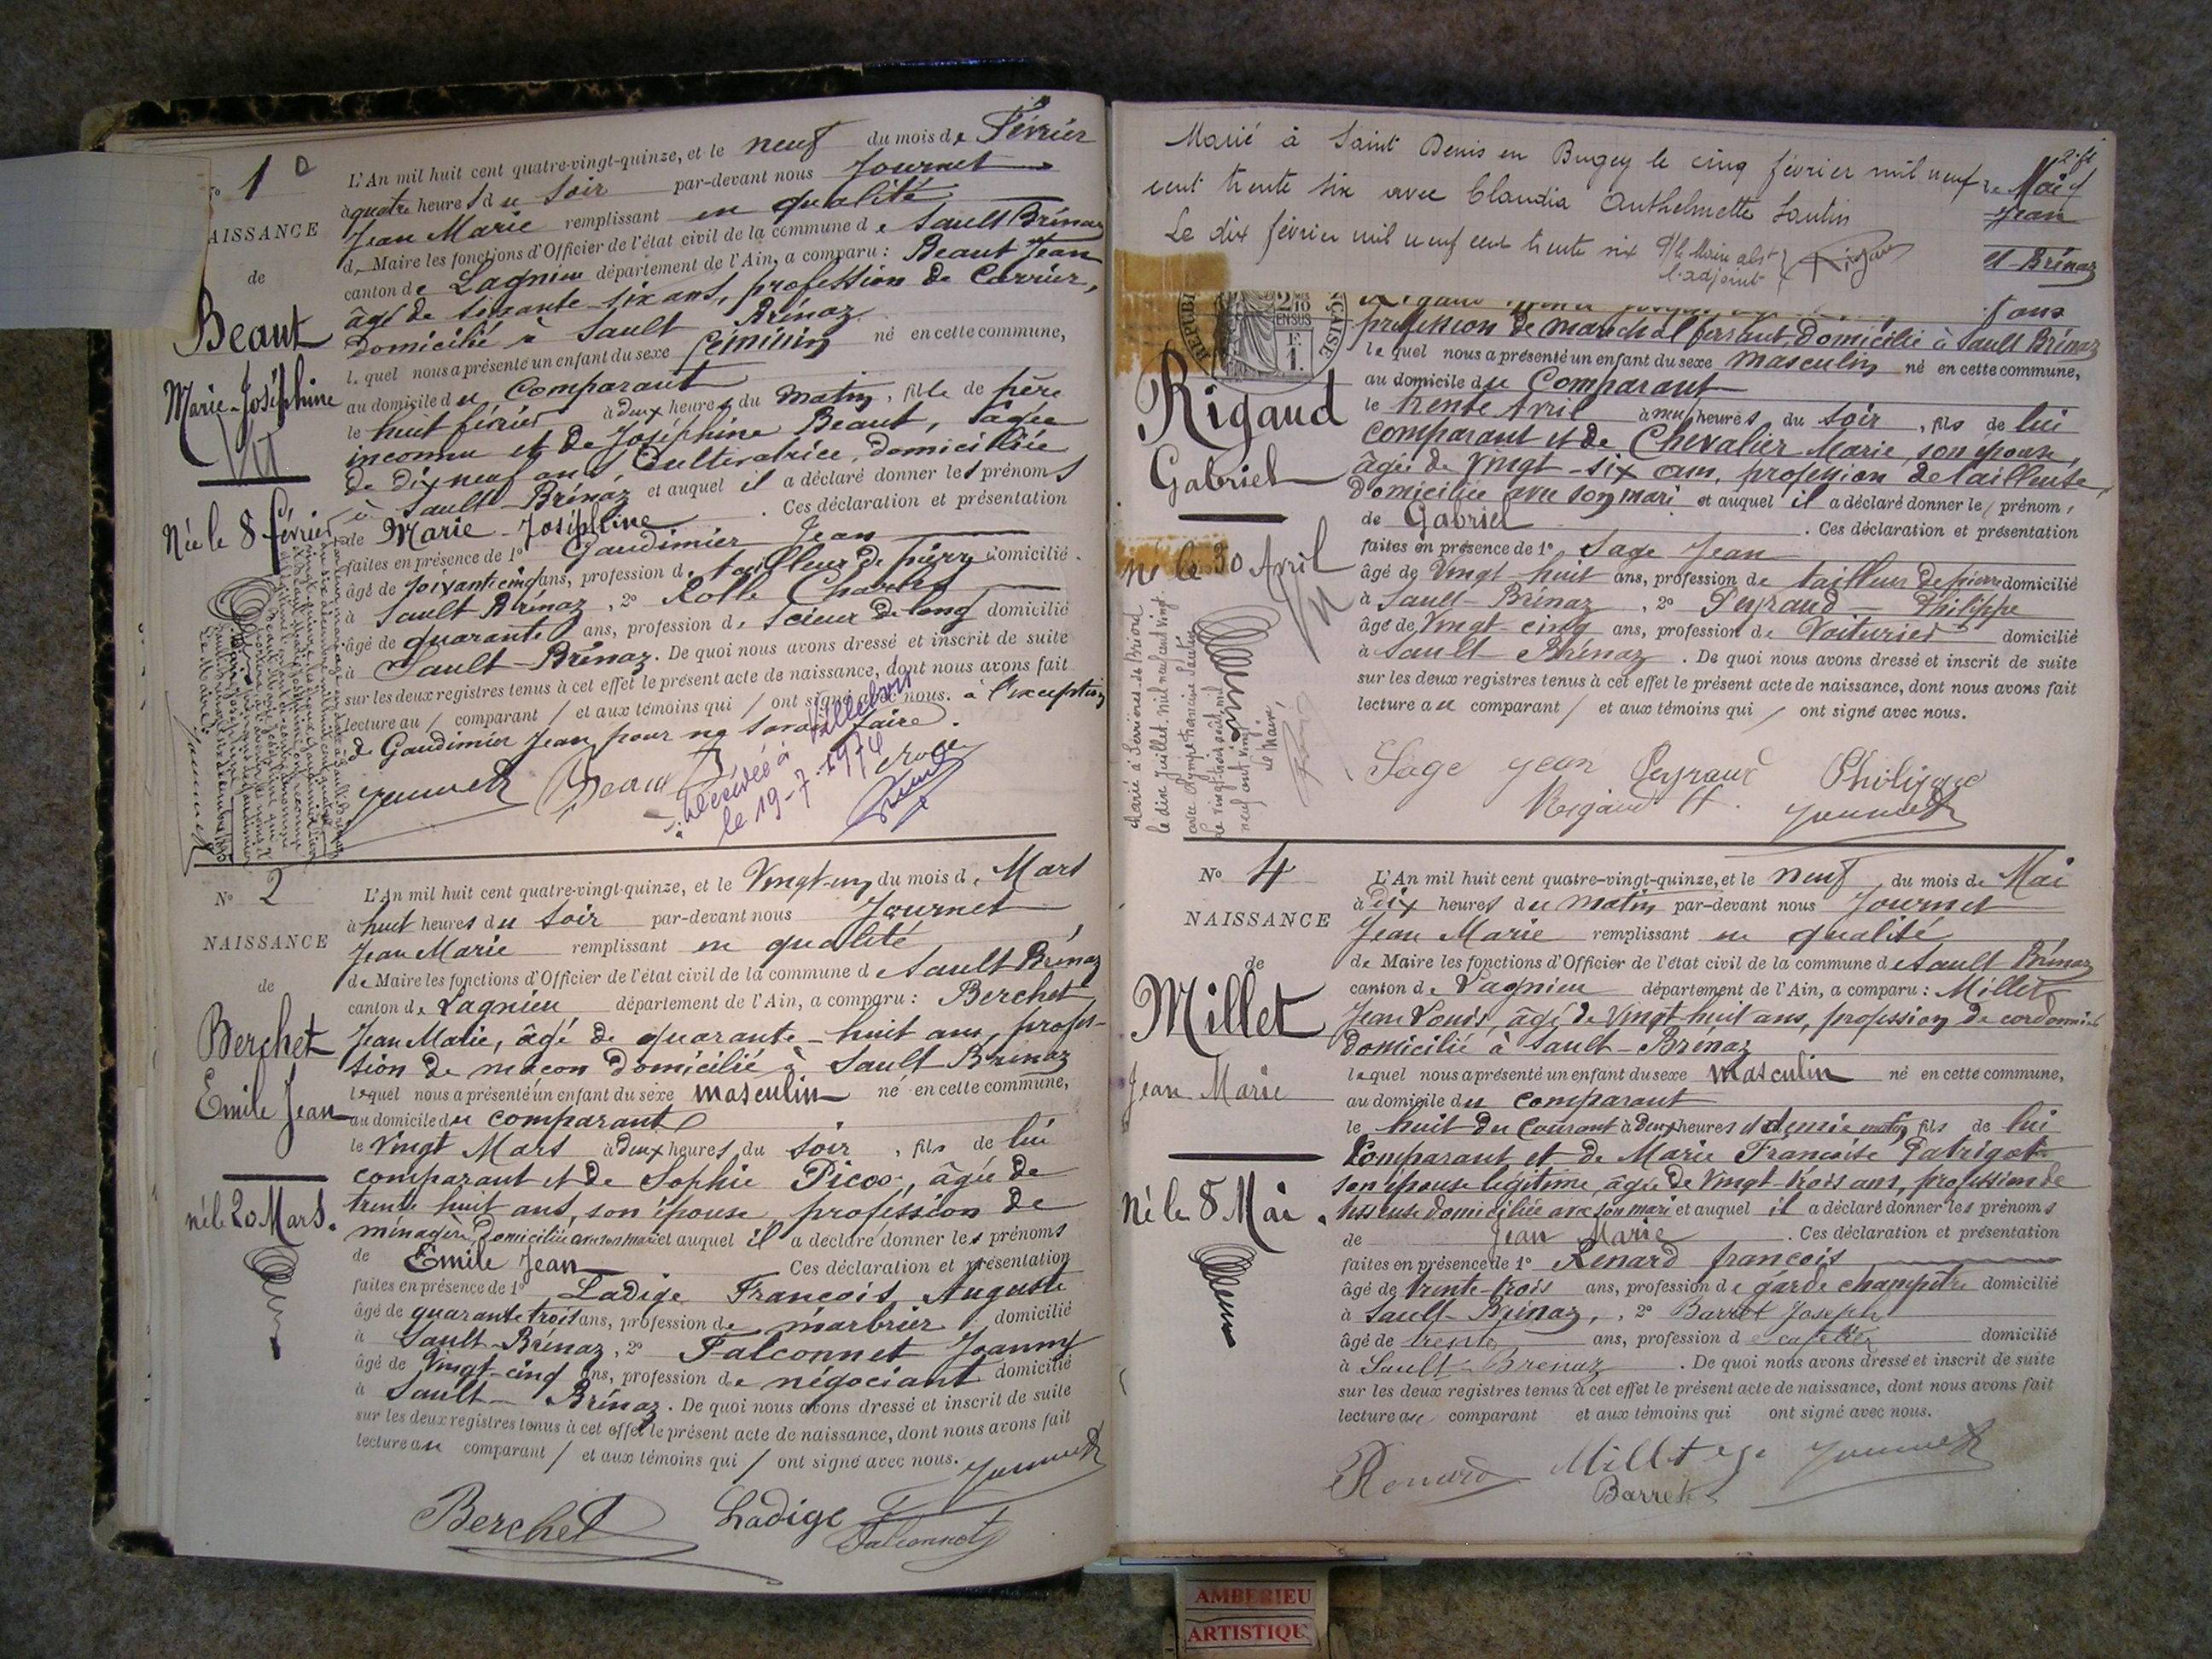 No 1
NAISSANCE
de
Beaut
Marie-Joséphine
Née le 8 février
L'An mil huit cent quatre-vingt-quinze, et le neuf du mois de Février
à quatre heures du soir par-devant nous Journet
Jean Marie remplissant en qualité
de Maire les fonctions d'Officier de l'état civil de la commune de Sault Brénaz
canton de Lagnieu département de l'Ain, a comparu : Beaut Jean
âgé de soixante-six ans, profession de Carrier,
domicilié à Sault Brénaz
lequel nous a présenté un enfant du sexe féminin né en cette commune,
au domicile du Comparant
le huit février à deux heures du matin, fille de père
inconnu et de Joséphine Beaut, âgée
de dix neuf ans, Cultivatrice, domiciliée
à Sault-Brénaz et auquel il a déclaré donner les prénoms
de Marie-Joséphine. Ces déclaration et présentation
faites en présence de 1° Gaudimier Jean
âgé de soixante cinq ans, profession de tailleur de pierre domicilié
à Sault Brénaz, 2° Rolle Charles
âgé de quarante ans, profession de scieur de long domicilié
à Sault-Brénaz. De quoi nous avons dressé et inscrit de suite
sur les deux registres tenus à cet effet le présent acte de naissance, dont nous avons fait
lecture au comparant et aux témoins qui ont signé avec nous. à l'exception
de Gaudimier Jean pour ne savoir faire.
Journet Beaut
Décédée à Villebois
le 19-7-1974
No 2
NAISSANCE
de
Berchet
Emile Jean
né le 20 Mars.
L'An mil huit cent quatre-vingt-quinze, et le Vingt-un du mois de Mars
à huit heures du soir par-devant nous Journet
Jean Marie remplissant en qualité
de Maire les fonctions d'Officier de l'état civil de la commune de Sault Brénaz
canton de Lagnieu département de l'Ain, a comparu : Berchet
Jean Marie, âgé de quarante-huit ans, profes-
sion de maçon domicilié à Sault Brénaz
lequel nous a présenté un enfant du sexe masculin né en cette commune,
au domicile du comparant
le Vingt Mars à deux heures du soir, fils de lui
comparant et de Sophie Picoo, âgée de
trente huit ans, son épouse, profession de
ménagère, Domiciliée avec son mari et auquel il a déclaré donner les prénoms
de Emile Jean Ces déclaration et présentation
faites en présence de 1° Ladige François Auguste
âgé de quarante trois ans, profession de marbrier domicilié
à Sault-Brénaz, 2° Falconnet Joanny
âgé de Vingt-cinq ans, profession de négociant domicilié
à Sault-Brénaz. De quoi nous avons dressé et inscrit de suite
sur les deux registres tenus à cet effet le présent acte de naissance, dont nous avons fait
lecture au comparant et aux témoins qui ont signé avec nous.
Journet
Berchet Ladige
Falconnet
Marié à Saint Denis en Bugey le cinq février mil neuf
cent trente six avec Claudia Anthelmette Sautin
Le dix février mil neuf cent trente six P/le Maire abst
l'adjoint
Mai
Jean
t-Brénaz
ans
2/10 EN SUS
F. 1.
Rigaud
Gabriel
né le 30 Avril
profession de maréchal ferrant, Domicilié à Sault Brénaz
lequel nous a présenté un enfant du sexe masculin né en cette commune,
au domicile du Comparant
le trente Avril à neuf heures du soir, fils de lui
comparant et de Chevalier Marie, son épouse,
âgée de Vingt-six ans, profession de tailleuse,
Domiciliée avec son mari et auquel il a déclaré donner le prénom
de Gabriel. Ces déclaration et présentation
faites en présence de 1° Sage Jean
âgé de Vingt-huit ans, profession de tailleur de pierre domicilié
à Sault-Brénaz, 2° Peyraud Philippe
âgé de Vingt-cinq ans, profession de Voiturier domicilié
à Sault Brénaz. De quoi nous avons dressé et inscrit de suite
sur les deux registres tenus à cet effet le présent acte de naissance, dont nous avons fait
lecture au comparant et aux témoins qui ont signé avec nous.
Marié à Serrières-de-Briord
avec Olympe Francine Sautin
le Maire,
Sage Jean Peyraud Philippe
Rigaud H. Journet
No 4
NAISSANCE
de
Millet
Jean Marie
Né le 8 Mai.
L'An mil huit cent quatre-vingt-quinze, et le neuf du mois de Mai
à dix heures du matin par-devant nous Journet
Jean Marie remplissant en qualité
de Maire les fonctions d'Officier de l'état civil de la commune de Sault Brénaz
canton de Lagnieu département de l'Ain, a comparu : Millet
Jean Louis, âgé de Vingt huit ans, profession de cordonnier
domicilié à Sault-Brénaz
lequel nous a présenté un enfant du sexe masculin né en cette commune,
au domicile du comparant
le huit du Courant à deux heures et demie matin, fils de lui
Comparant et de Marie Françoise Patrigot
son épouse légitime, âgée de Vingt-trois ans, profession de
tisseuse domiciliée avec son mari et auquel il a déclaré donner les prénoms
de Jean Marie. Ces déclaration et présentation
faites en présence de 1° Renard françois
âgé de trente-trois ans, profession de garde champêtre domicilié
à Sault-Brénaz, 2° Barret Joseph
âgé de trente ans, profession de cafetier domicilié
à Sault-Brenaz. De quoi nous avons dressé et inscrit de suite
sur les deux registres tenus à cet effet le présent acte de naissance, dont nous avons fait
lecture au comparant et aux témoins qui ont signé avec nous.
Renard Millet Journet
Barret
AMBERIEU
ARTISTIQU